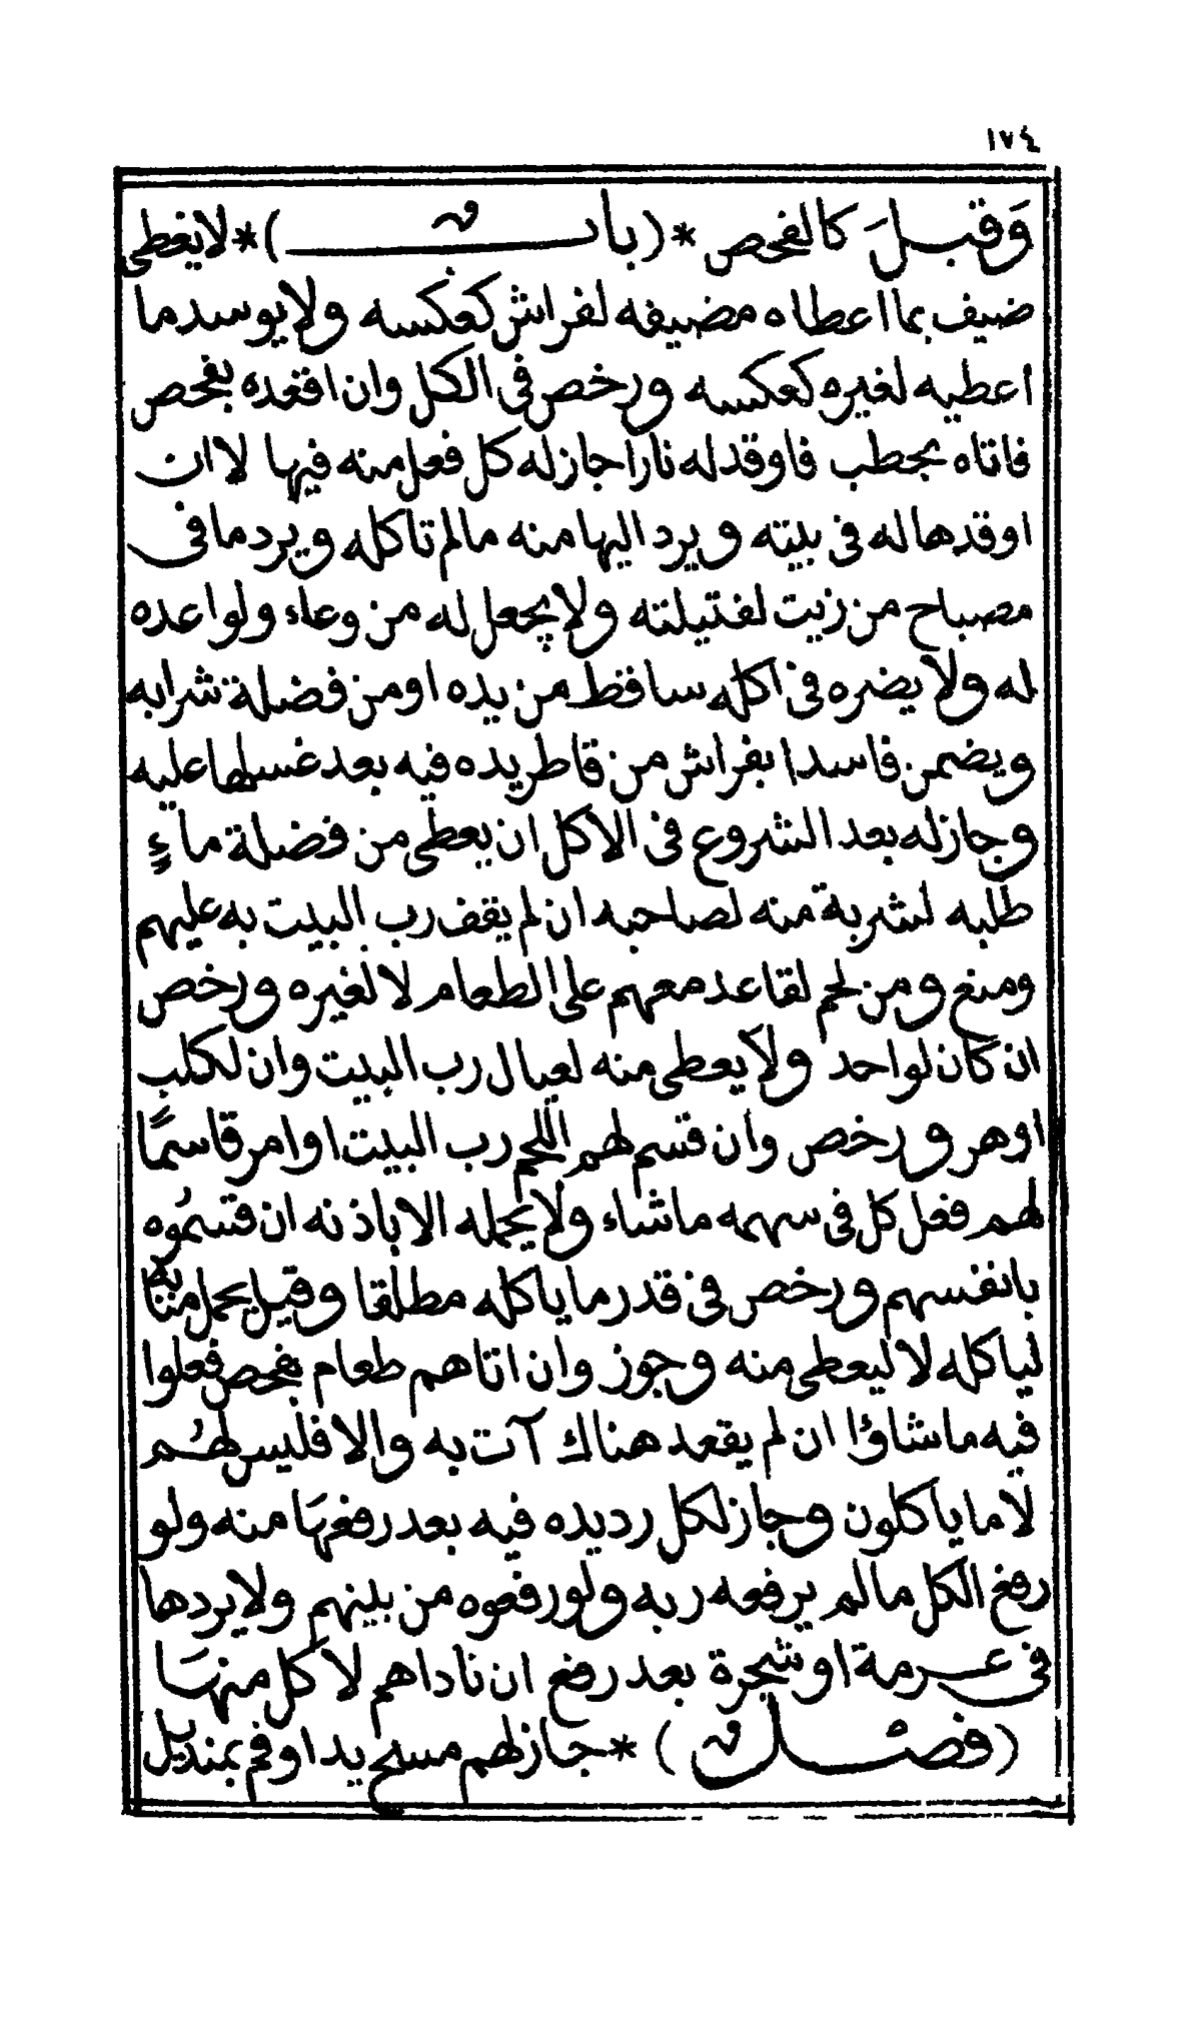 ١٧٤
وَقبل كالفحص *(باب)* لا يغطى
ضيف بما اعطاه مضيفه لفراش كعكسه ولا يوسد ما
اعطيه لغيره كعكسه ورخص فى الكل وان اقعده بفحص
فاتاه بحطب فاوقد له نارا جاز له كل فعل منه فيها لا ان
اوقدها له فى بيته ويرد اليها منه ما لم تاكله ويرد ما فى
مصباح من زيت لفتيلته ولا يجعل له من وعاء ولو اعده
له ولا يضره فى اكله ساقط من يده او من فضلة شرابه
ويضمن فاسدا بفراش من قاطر يده فيه بعد غسلها عليه
وجاز له بعد الشروع فى الاكل ان يعطى من فضلة ماءٍ
طلبه لشربة منه لصاحبه ان لم يقف رب البيت به عليهم
ومنع ومن لحم لقاعد معهم على الطعام لا لغيره ورخص
ان كان لواحد ولا يعطى منه لعيال رب البيت وان لكلب
اوهر ورخص وان قسم لهم اللحم رب البيت او امر قاسمًا
لهم فعل كل فى سهمه ما شاء ولا يحمله الا باذنه ان قسمُوه
بانفسهم ورخص فى قدر ما ياكله مطلقا وقيل يحمل منابه
لياكله لا ليعطى منه وجوز وان اتاهم طعام بفحص فعلوا
فيه ما شاؤا ان لم يقعد هناك آت به والا فليس لهُم
لا ما ياكلون وجاز لكل رد يده فيه بعد رفعهَا منه ولو
رفع الكل ما لم يرفعه ربه ولو رفعوه من بينهم ولا يردها
فى عرمة او شجرة بعد رفع ان ناداهم لاكل منهَا
(فصل) * جاز لهم مسح يد او فم بمنديل